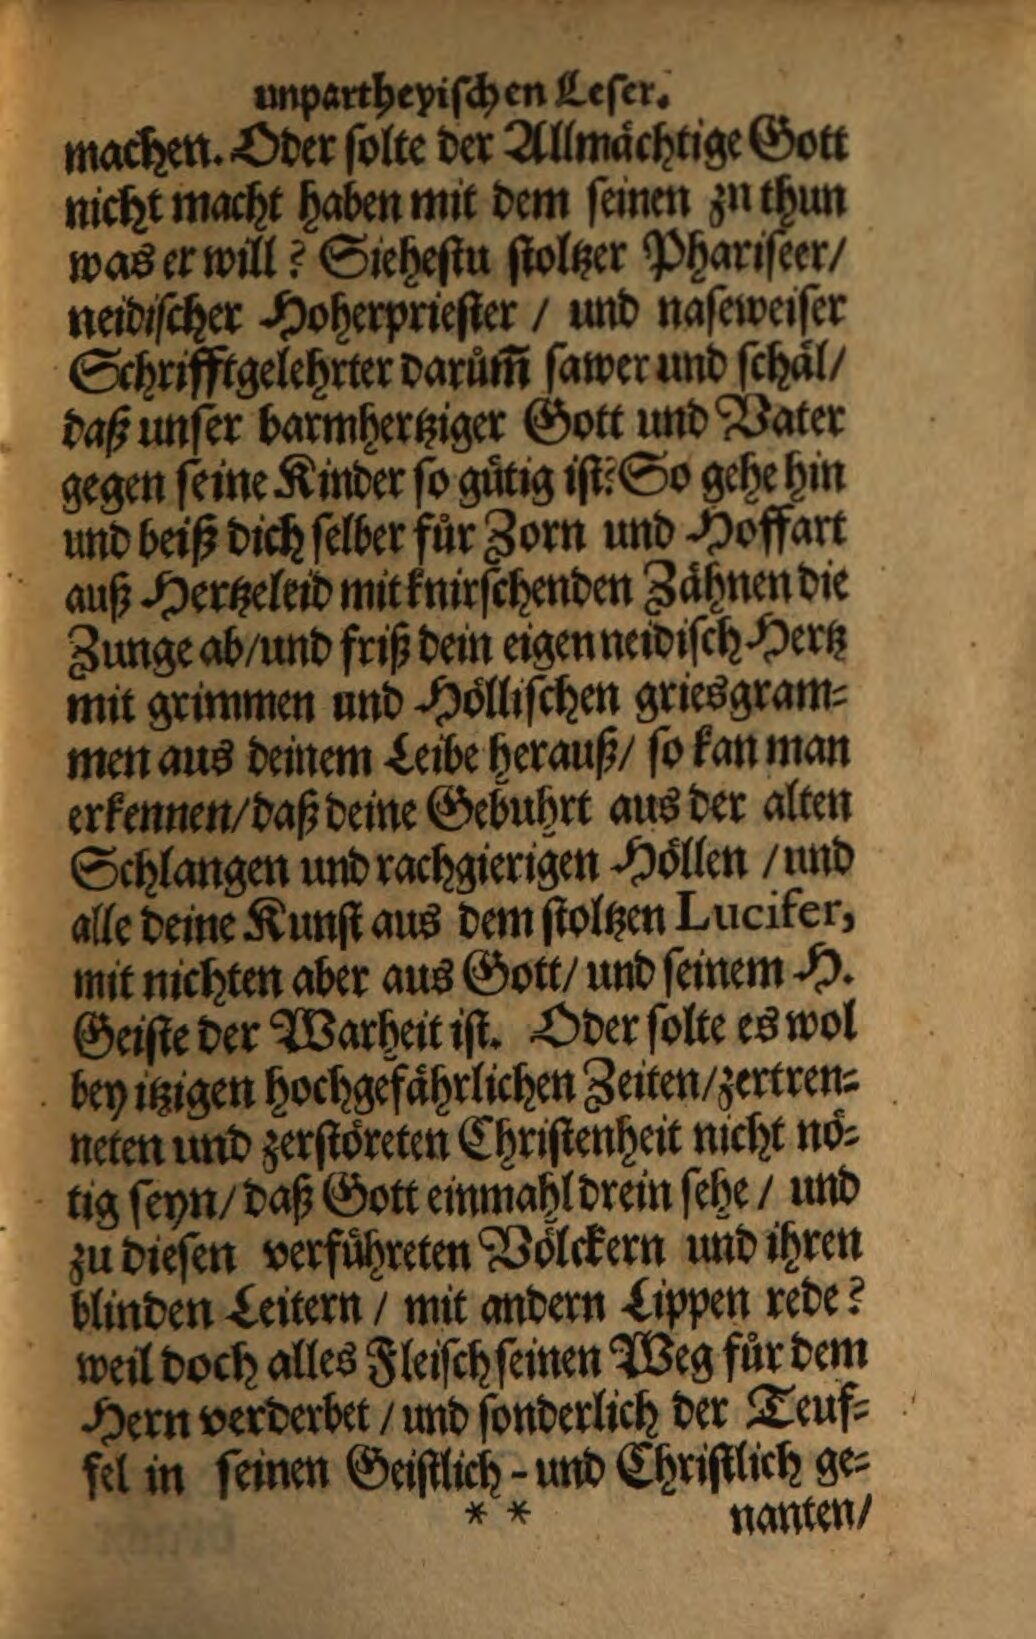 unpartheyischen Leser.
machen. Oder solte der Allmächtige Gott
nicht macht haben mit dem seinen zu thun
was er will? Siehestu stoltzer Phariseer/
neidischer Hoherpriester / und naseweiser
Schrifftgelehrter darům̃ sawer und schäl/
daß unser barmhertziger Gott und Vater
gegen seine Kinder so gütig ist? So gehe hin
und beiß dich selber für Zorn und Hoffart
auß Hertzeleid mit knirschenden Zähnen die
Zunge ab/und friß dein eigen neidisch Hertz
mit grimmen und Höllischen griesgram-
men aus deinem Leibe herauß/ so kan man
erkennen/daß deine Gebuhrt aus der alten
Schlangen und rachgierigen Höllen /und
alle deine Kunst aus dem stoltzen Lucifer,
mit nichten aber aus Gott/ und seinem H.
Geiste der Warheit ist. Oder solte es wol
bey itzigen hochgefährlichen Zeiten/zertren-
neten und zerstöreten Christenheit nicht nö-
tig seyn/ daß Gott einmahl drein sehe / und
zu diesen verführeten Völckern und ihren
blinden Leitern / mit andern Lippen rede?
weil doch alles Fleisch seinen Weg für dem
Hern verderbet / und sonderlich der Teuf-
fel in seinen Geistlich - und Christlich ge-
* * nanten/